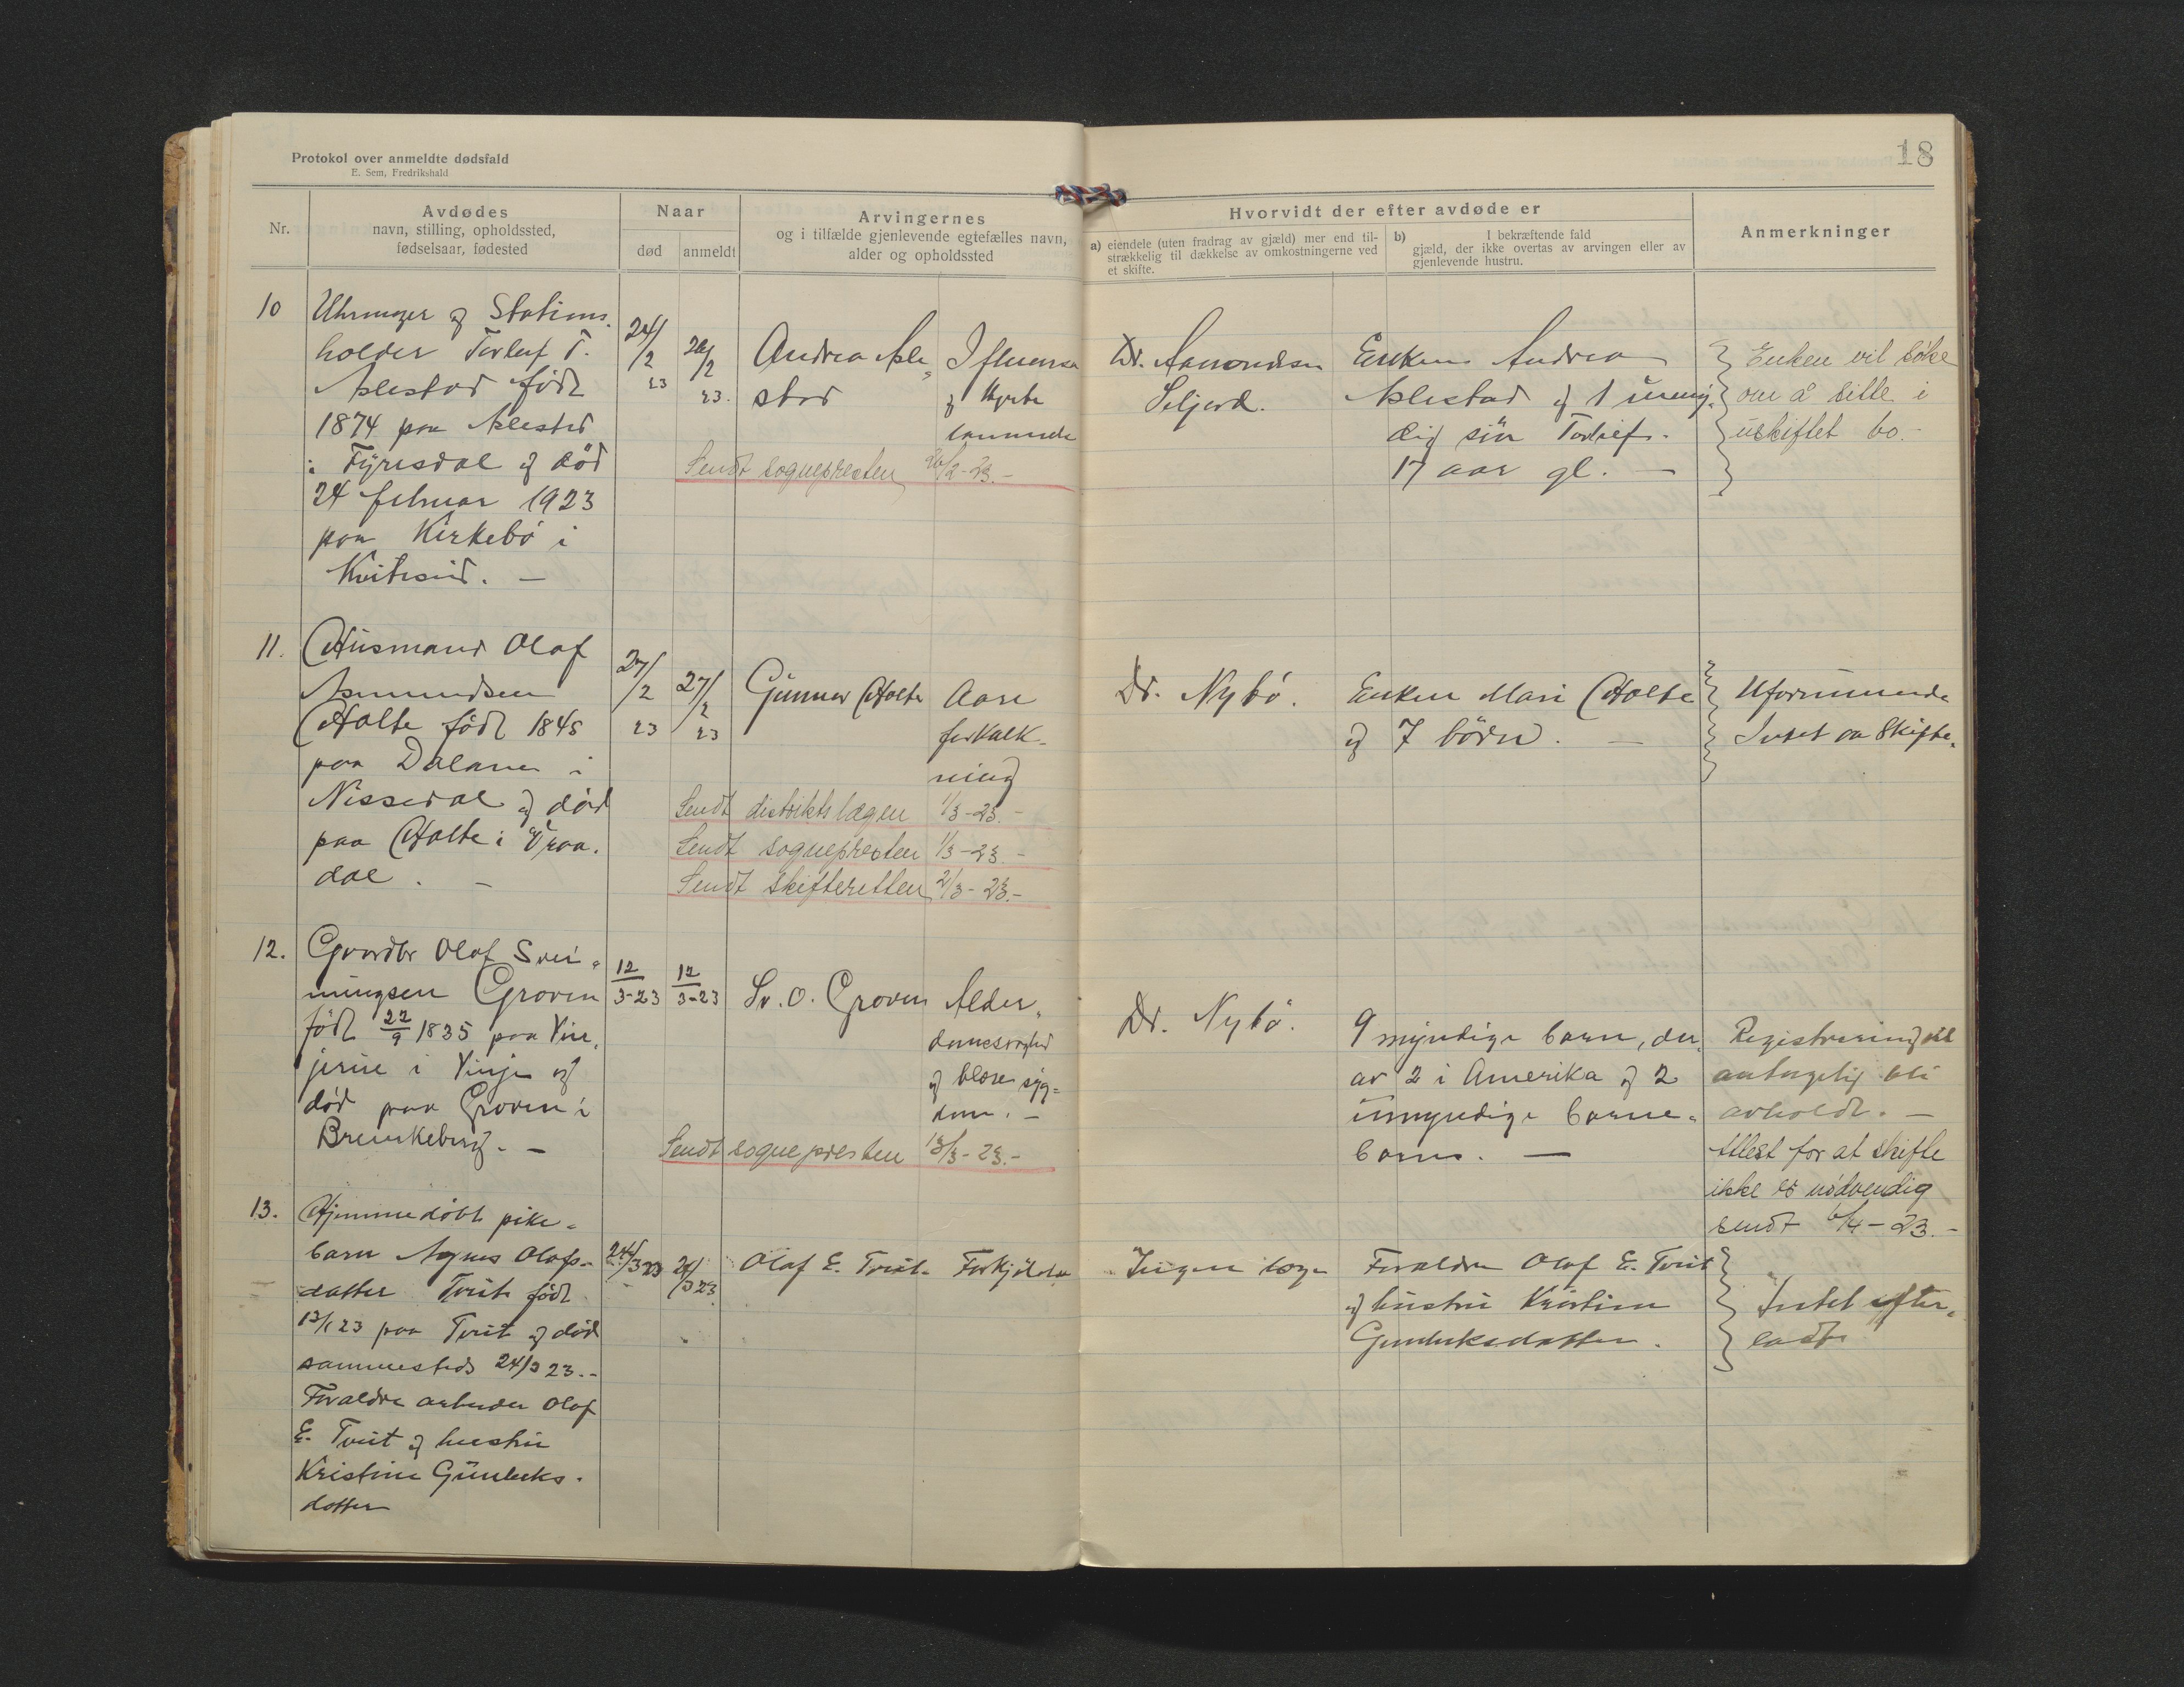 Protokol over anmeldte dødsfald
E. Sem, Fredrikshald
18
Nr.
Avdødes
navn, stilling, opholdssted,
fødselsaar, fødested
Naar
død
anmeldt
Arvingernes
og i tilfælde gjenlevende egtefælles navn,
alder og opholdssted
Hvorvidt der efter avdøde er
a) eiendele (uten fradrag av gjæld) mer end til-
strækkelig til dækkelse av omkostningerne ved
et skifte.
b) I bekræftende fald
gjæld, der ikke overtas av arvingen eller av
gjenlevende hustru.
Anmerkninger
10
Uhrmager og Stations-
holder Torleif T.
Aslestad född
1874 paa Aslestad
i Fyresdal og död
24 februar 1923
paa Kirkebö i
Kviteseid. —
24/2 23
26/2 23.
Andrea Asle-
stad
Ifluensa
og Hjerte
lammelse
Sendt sognepresten 26/2-23.-
Dr. Aamondsen
Seljord.
Enken Andrea
Aslestad og 1 umyn-
dig sön Torleif.
17 aar gl. —
Enken vil söke
om å sitte i
uskiftet bo.-
11.
Husmand Olaf
Asmundsen
Holte född 1845
paa Dalane i
Nissedal og död
paa Holte i Vraa-
dal. —
27/2 23
27/2 23
Gunnar Holte
Aare
forkalk-
ning
Sendt distriktslægen 1/3-23.-
Sendt sognepresten 1/3-23.-
Sendt skifteretten 2/3-23.-
Dr. Nybö.
Enken Mari Holte
og 7 börn. —
Uformuende
Intet av Skifte.
12.
Gvardbr Olaf Svei-
nungsen Groven
född 22/9 1835 paa Vine-
jerue i Vinje og
död paa Groven i
Brunkeberg. —
12/3-23
12/3-23
Sv. O. Groven
Alder-
domssvaghed
og blæresyg-
dom. —
Sendt sognepresten 13/3-23.-
Dr. Nybö.
9 myndige barn, der-
av 2 i Amerika og 2
umyndige barne-
barn. —
Registrering vil
antagelig bli
avholdt. —
Attest for at skifte
ikke er nödvendig
sendt 6/4-23.-
13.
Hjemmedöbt pike-
barn Agnes Olafs-
datter Tveit född
13/1 23 paa Tveit og död
sammesteds 24/3 23.-
Foraldre arbeider Olaf
E. Tveit og hustru
Kristine Gunleiks-
datter
24/3 23
26/3 23
Olaf E. Tveit.
Forkjölelse
Ingen læge
Foraldre Olaf E. Tveit
og hustru Kristine
Gunleiksdatter.
Intet efter-
ladt